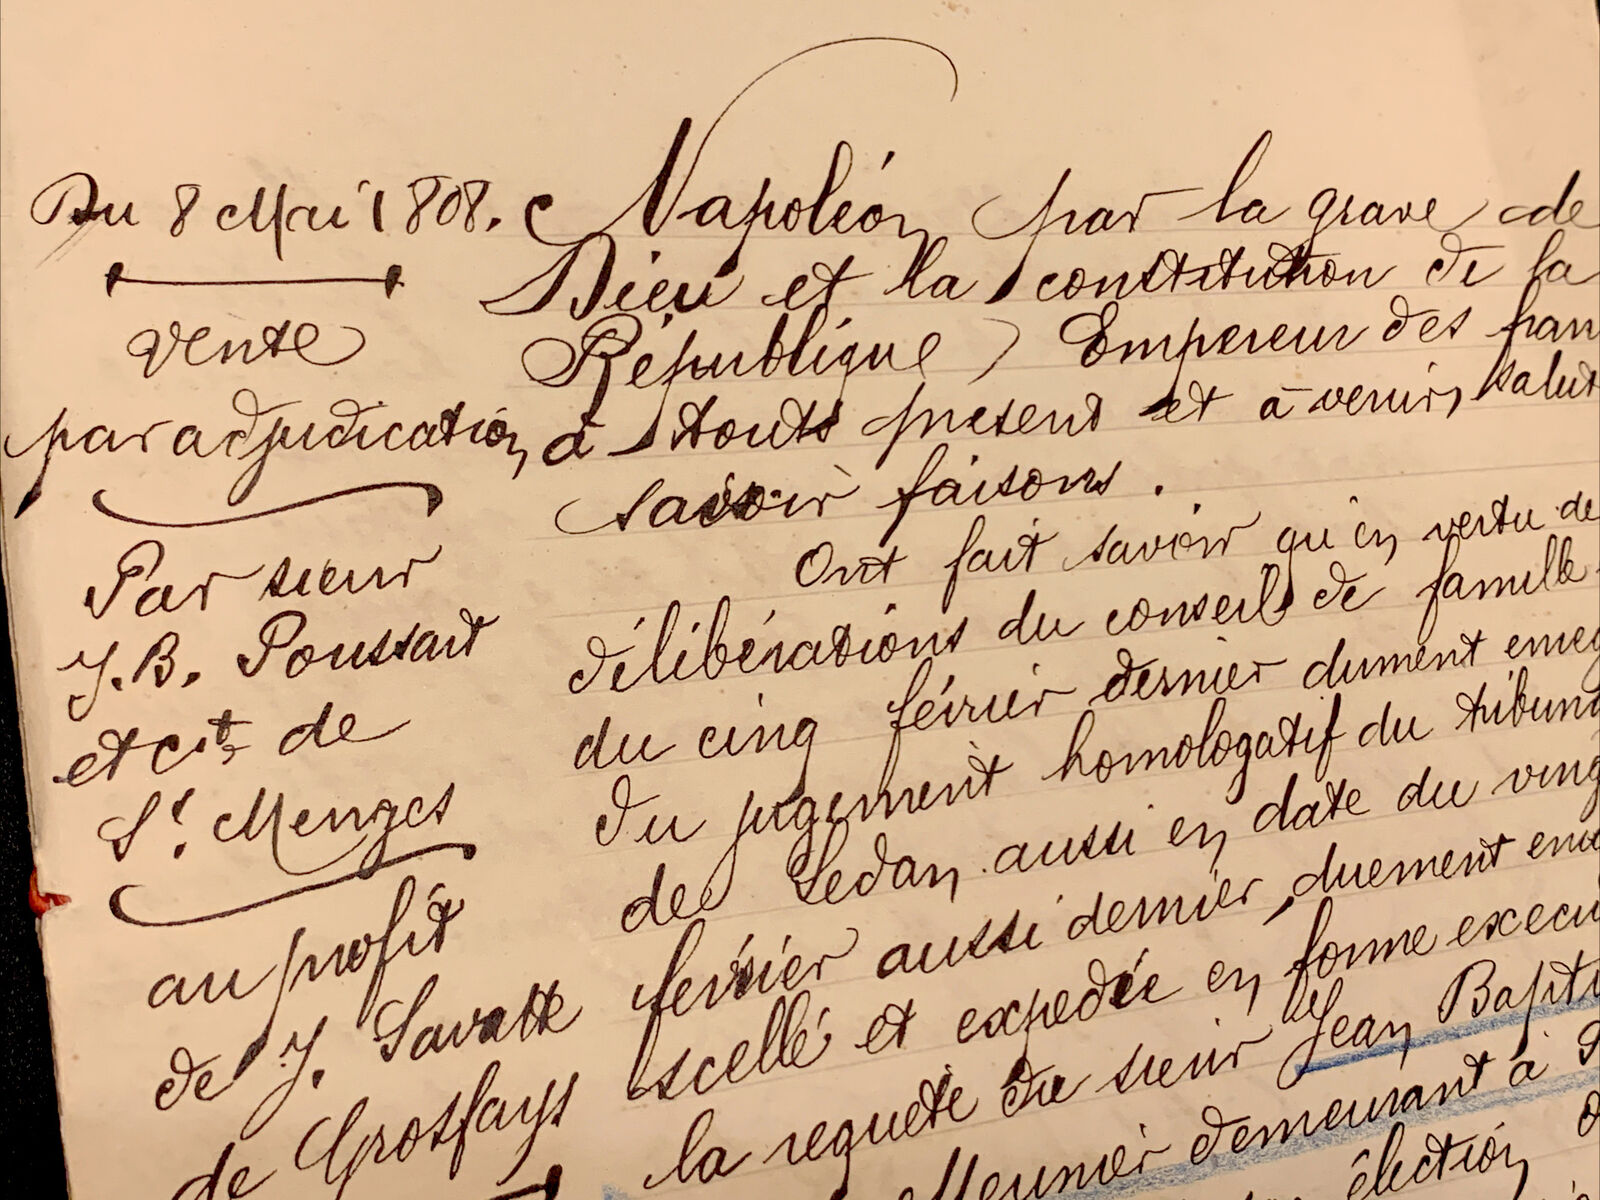 Du 8 Mai 1808.
vente
par adjudication
Par sieur
J. B. Poussart
et cits de
St. Menges
au profit
de J. Savatte
de Grosfays
Napoléon par la grave de
Dieu et la constitution de la
République Empereur des fran
à touts present et à venir, salut
savoir faisons.
Ont fait savoir qu'en vertu de
délibérations du conseil de famille
du cinq février dernier dument
du jugement homologatif du tribuna
de Sedan aussi en date du ving
fevrier aussi dernier, duement
scellé et expediée en forme execu
la requete du sieur Jean Bapti
Meunier demeurant à
élection